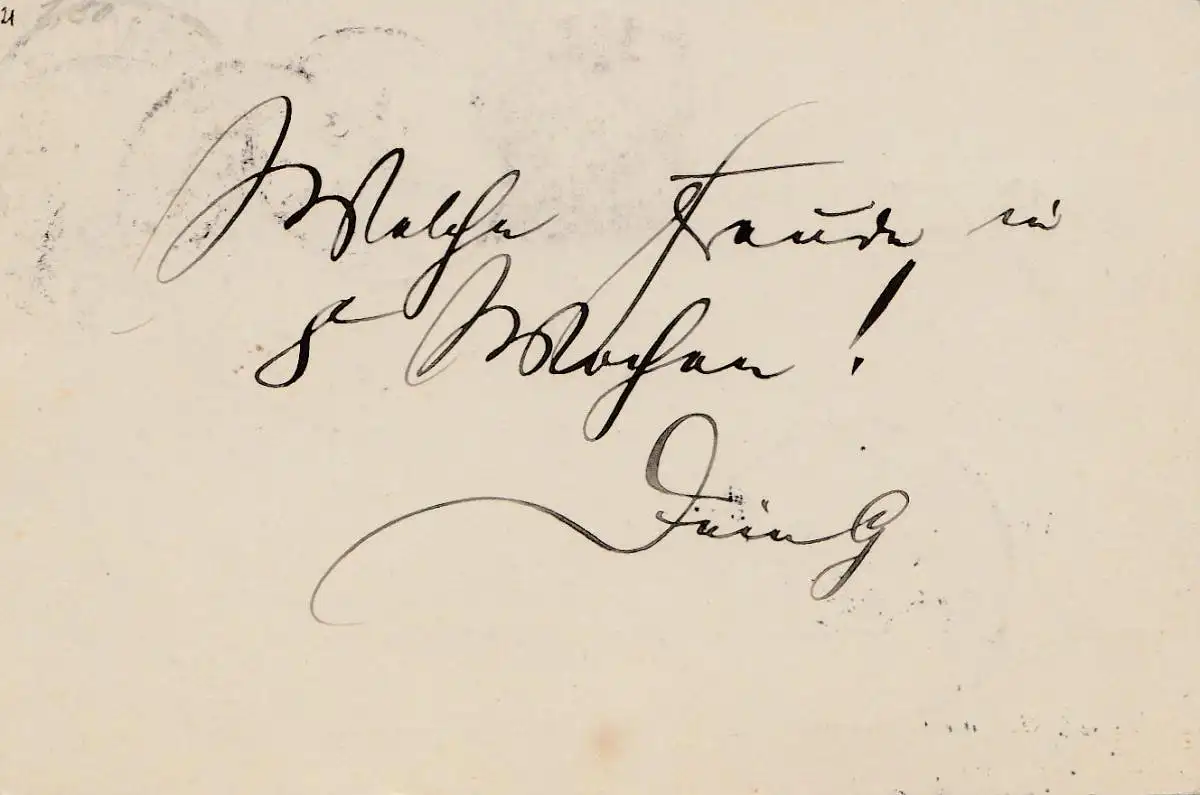 21
Welche Freude in
8 Wochen!
Dein G